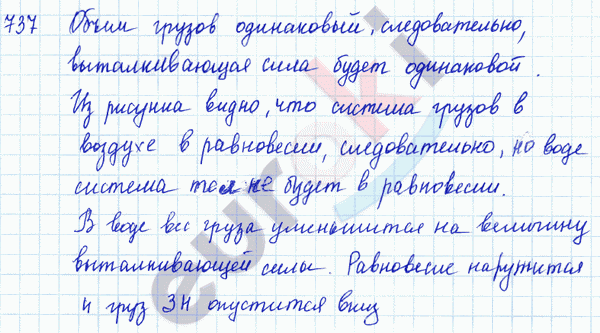 737 Объем грузов одинаковый, следовательно,
выталкивающая сила будет одинаковой.
Из рисунка видно, что система грузов в
воздухе в равновесии, следовательно, но воде
система тоже не будет в равновесии.
В воде вес груза уменьшится на величину
выталкивающей силы. Равновесие нарушится
и груз 3Н опустится вниз
euroki